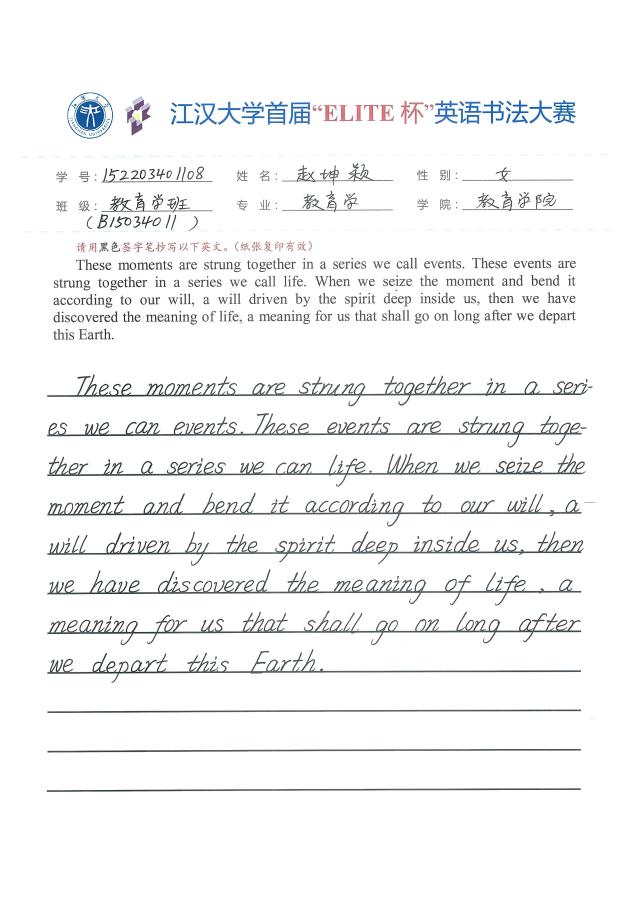 江汉大学首届“ELITE 杯”英语书法大赛
学 号：152203401108 姓 名：赵坤颖 性 别：女
班 级：教育学班 专 业：教育学 学 院：教育学院
(B15034011)
请用黑色签字笔抄写以下英文。（纸张复印有效）
These moments are strung together in a series we call events. These events are
strung together in a series we call life. When we seize the moment and bend it
according to our will, a will driven by the spirit deep inside us, then we have
discovered the meaning of life, a meaning for us that shall go on long after we depart
this Earth.
These moments are strung together in a seri-
es we can events. These events are strung toge-
ther in a series we can life. When we seize the
moment and bend it according to our will, a
will driven by the spirit deep inside us, then
we have discovered the meaning of life, a
meaning for us that shall go on long after
we depart this Earth.